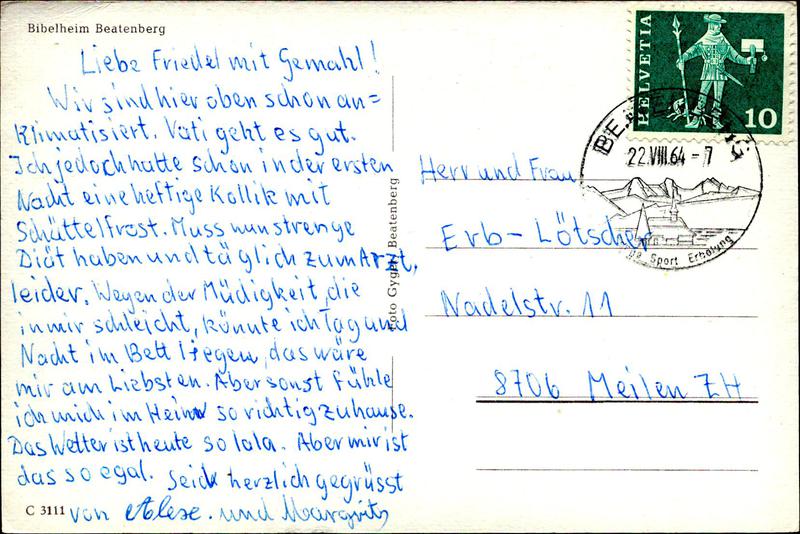 Bibelheim Beatenberg
Liebe Friedel mit Gemahl!
Wir sind hier oben schon an=
Klimatisiert. Vati geht es gut.
Ich jedoch hatte schon in der ersten
Nacht eine heftige Kollik mit
Schüttelfrost. Muss nun strenge
Diät haben und täglich zum Arzt,
leider. Wegen der Müdigkeit, die
in mir schleicht, könnte ich Tag und
Nacht im Bett liegen, das wäre
mir am Liebsten. Aber sonst fühle
ich mich im Heim so richtig zuhause.
Das Wetter ist heute so lala. Aber mir ist
das so egal. Seid herzlich gegrüsst
von und Margrit
C 3111
Foto Gyger, Beatenberg
HELVETIA
10
BEATENBERG
22.VIII.64-7
Sport Erholung
Herr und Frau
Erb-Lötscher
Nadelstr. 11
8706 Meilen ZH